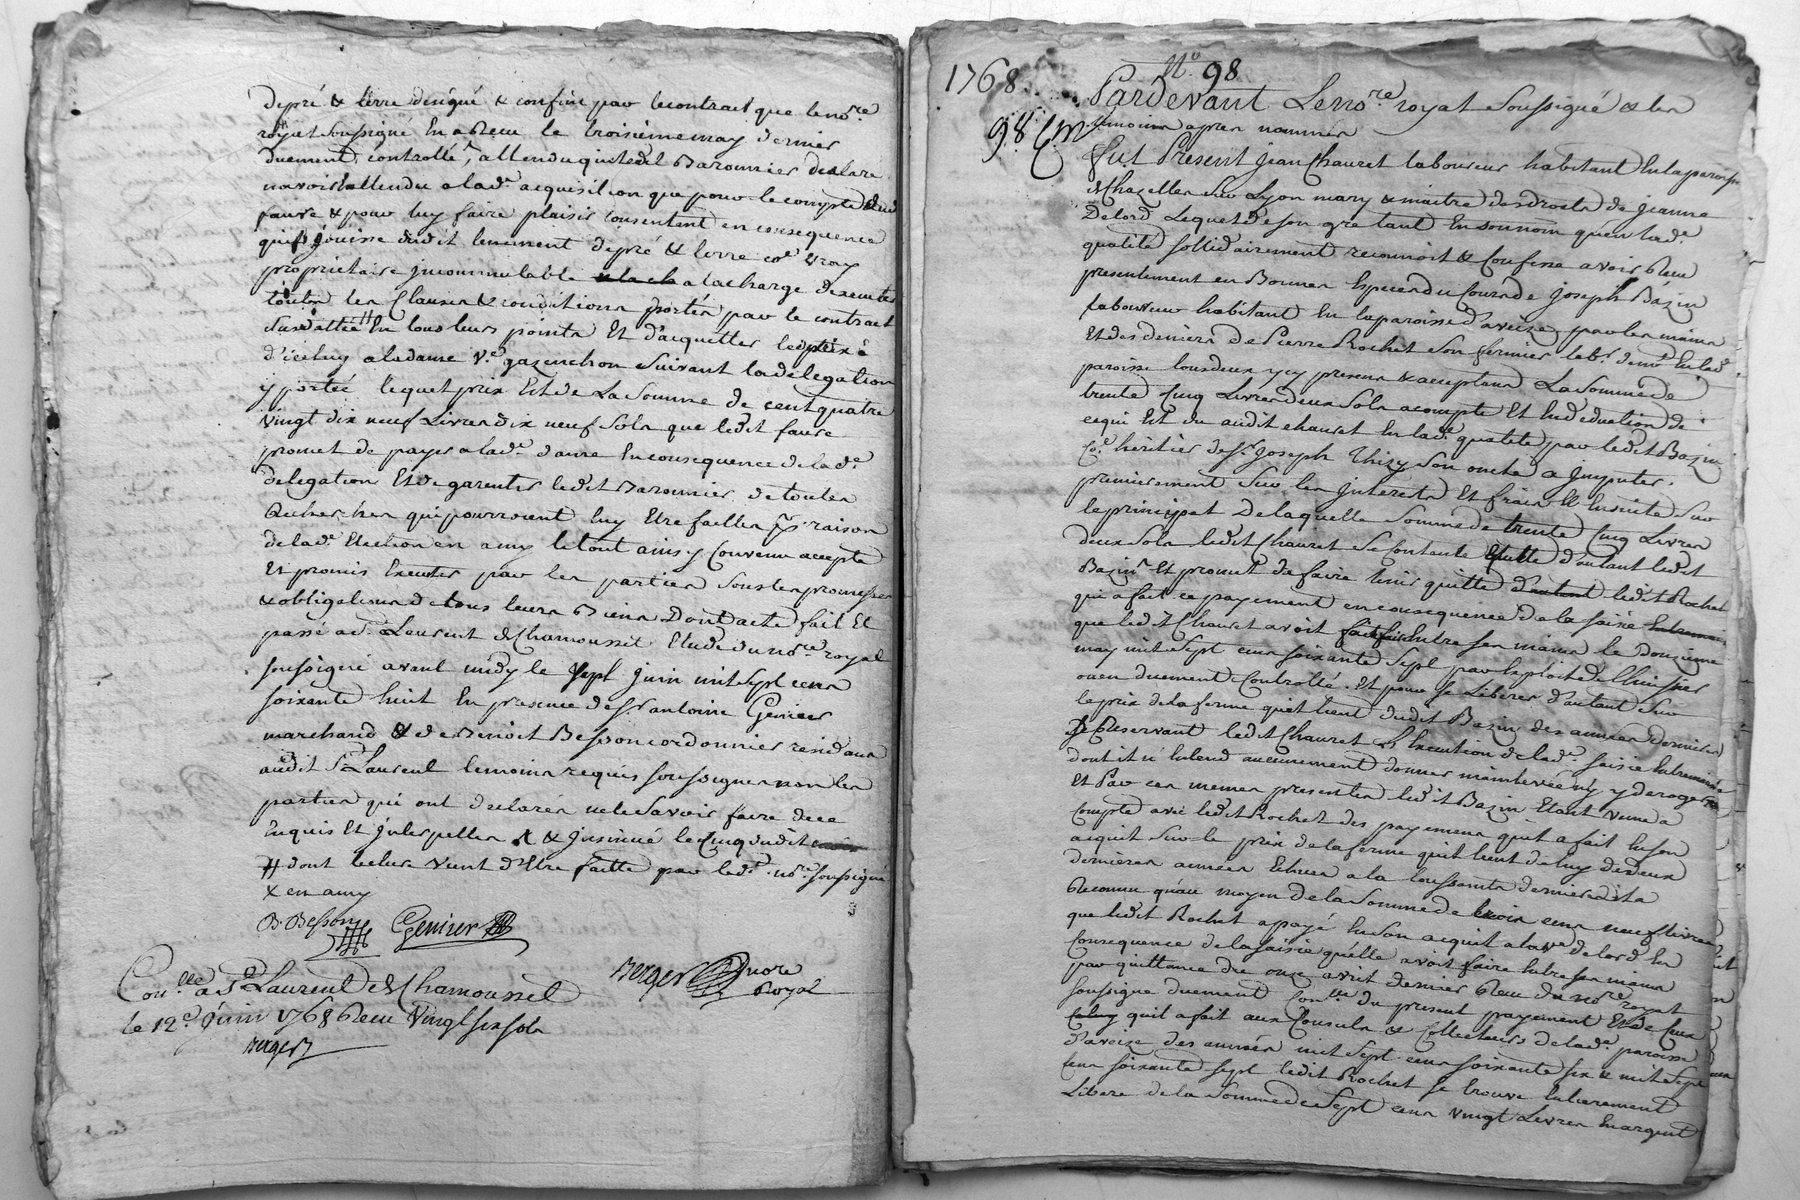 depré & terre designé & confiné par lecontract que leno.re
royal soussigné En a Receu le troisieme may dernier
duement controllé, attendu quiledit Baronnier declare
navoir Entendu a lad.e acquisition que pour le compte dud
faure & pour luy faire plaisir consentent en consequence
quil jouisse dudit tenement depré & terre co.e vray
proprietaire incommutable a lacharge dexecuter
toutes les Clauses & conditions portés par le contract
Susdatté En tous leurs points Et d'acquitter le prix
d'iceluy a ladame v.e gazanchon suivant la delegation
y portée lequel prix Est de La Somme de cent quatre
vingt dix neuf Livres dix neuf Sols que ledit faure
promet de payer a lad.e dame En consequence de lad.e
delegation Et de garentir ledit Baronnier de toutes
Recherches qui pourroient luy Etre faittes pr raison
de lad.e Election en amy le tout ainsy Convenu accepté
Et promis Executer par les parties sous les promesses
& obligations de tous leurs Biens Dont acte fait Et
passé a S.t Laurent de Chamousset Etude du no.re royal
soussigné avant midy le sept juin mil sept cens
soixante huit En presence de S.r antoine Genier
marchand & de Benoit Besson cordonnier residans
audit S.t Laurent temoins requis soussignés non les
parties qui ont declarés ne le Savoir faire de ce
Enquis Et interpellés & insinué le cinq dudit
# dont lecture vient d'Etre faitte par led.t no.re soussigné
X en amy
B. Besson Genier
Berger nore
Royal
Con.llé a S.t Laurent de Chamousset
le 12.e juin 1768 Receu Vingt six sols
Berger
1768 N.o 98
98
Pardevant Leno.re royal Soussigné & les
temoins apres nommés
Fut Present jean Chauret laboureur habitant En la paroisse
de Chazelles sur Lyon mary & maitre des droits de jeanne
Delord Lequel de son gre tant En son nom qu'en lad.e
qualité sollidairement reconnoit & Confesse avoir Receu
presentement en Bonnes Especes du Cours de joseph Bazin
Laboureur habitant En la paroisse d'aveize par les mains
Et des deniers de Pierre Rochet Son fermier lab.r dem.t En lad
paroisse tous deux icy presens & acceptans La Somme de
trente cinq Livres deux Sols acompte Et En deduction de
ce qui Est du audit chauret En lad.e qualité par ledit Bazin
co.e heritier de S.r joseph Thizy son oncle a imputer
premierement Sur les interests Et frais & Ensuite Sur
le principal De laquelle Somme de trente cinq Livres
deux Sols ledit Chauret Se contente quitte d'autant ledit
Bazin Et promet den faire tenir quitte ledit Rochet
qui a fait ce payement en consequence de la saisie
que ledit Chauret avoit fait faire Entre ses mains le Douzieme
may mil Sept cens soixante Sept par Exploit de l'huissier
ouen duement Controllé. Et pour se Liberer d'autant Sur
le prix de la ferme quil tient dudit Bazin des années dernieres
Se Reservant ledit Chauret L'Execution de lad.e saisie
dont il n'Entend aucunement donner mainlevée ny y deroger
Et Par ces memes presentes ledit Bazin Etant venu a
Compte avec ledit Rochet des payemens quil a fait En son
acquit sur le prix de la ferme quil tient de luy des deux
dernieres années Echues a la toussaints derniere Il a
Reconnu qu'au moyen de la Somme de trois cens neuf livres
que ledit Rochet a payé En son acquit a la v.e delord En
Consequence de la saisie qu'elle avoit faire Entre ses mains
par quittance du onze avril dernier Receu du no.re royal
soussigné duement Con.llé du present payement Et de Ceux
quil a fait aux Consuls & Collecteurs de lad.e paroisse
d'aveize des années mil sept cens soixante six & mil sept
cens soixante sept ledit Rochet se trouve Entierement
Liberé de la Somme de sept cens vingt Livres En argent